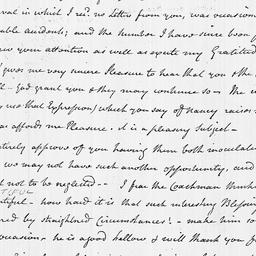 val in which I rec.d no Letter from you, was occasion
able accidents; and the number I have since been
your attention as well as excite my Gratitud
gives me very sincere Pleasure to hear that you & the
God grant you & they may continue so - The
us that Expression) which you say of Nancy raises
as affords me Pleasure. it is a pleasing Subject -
tirely approve of you having them both inoculate
we may not have such another opportunity, and
not to be neglected - - I fear the Coachman
TIFUL
tiful - how hard it is that such interesting Blessing
red by straightned Circumstances! - make him
occasion - he is a good fellow & I will thank you f